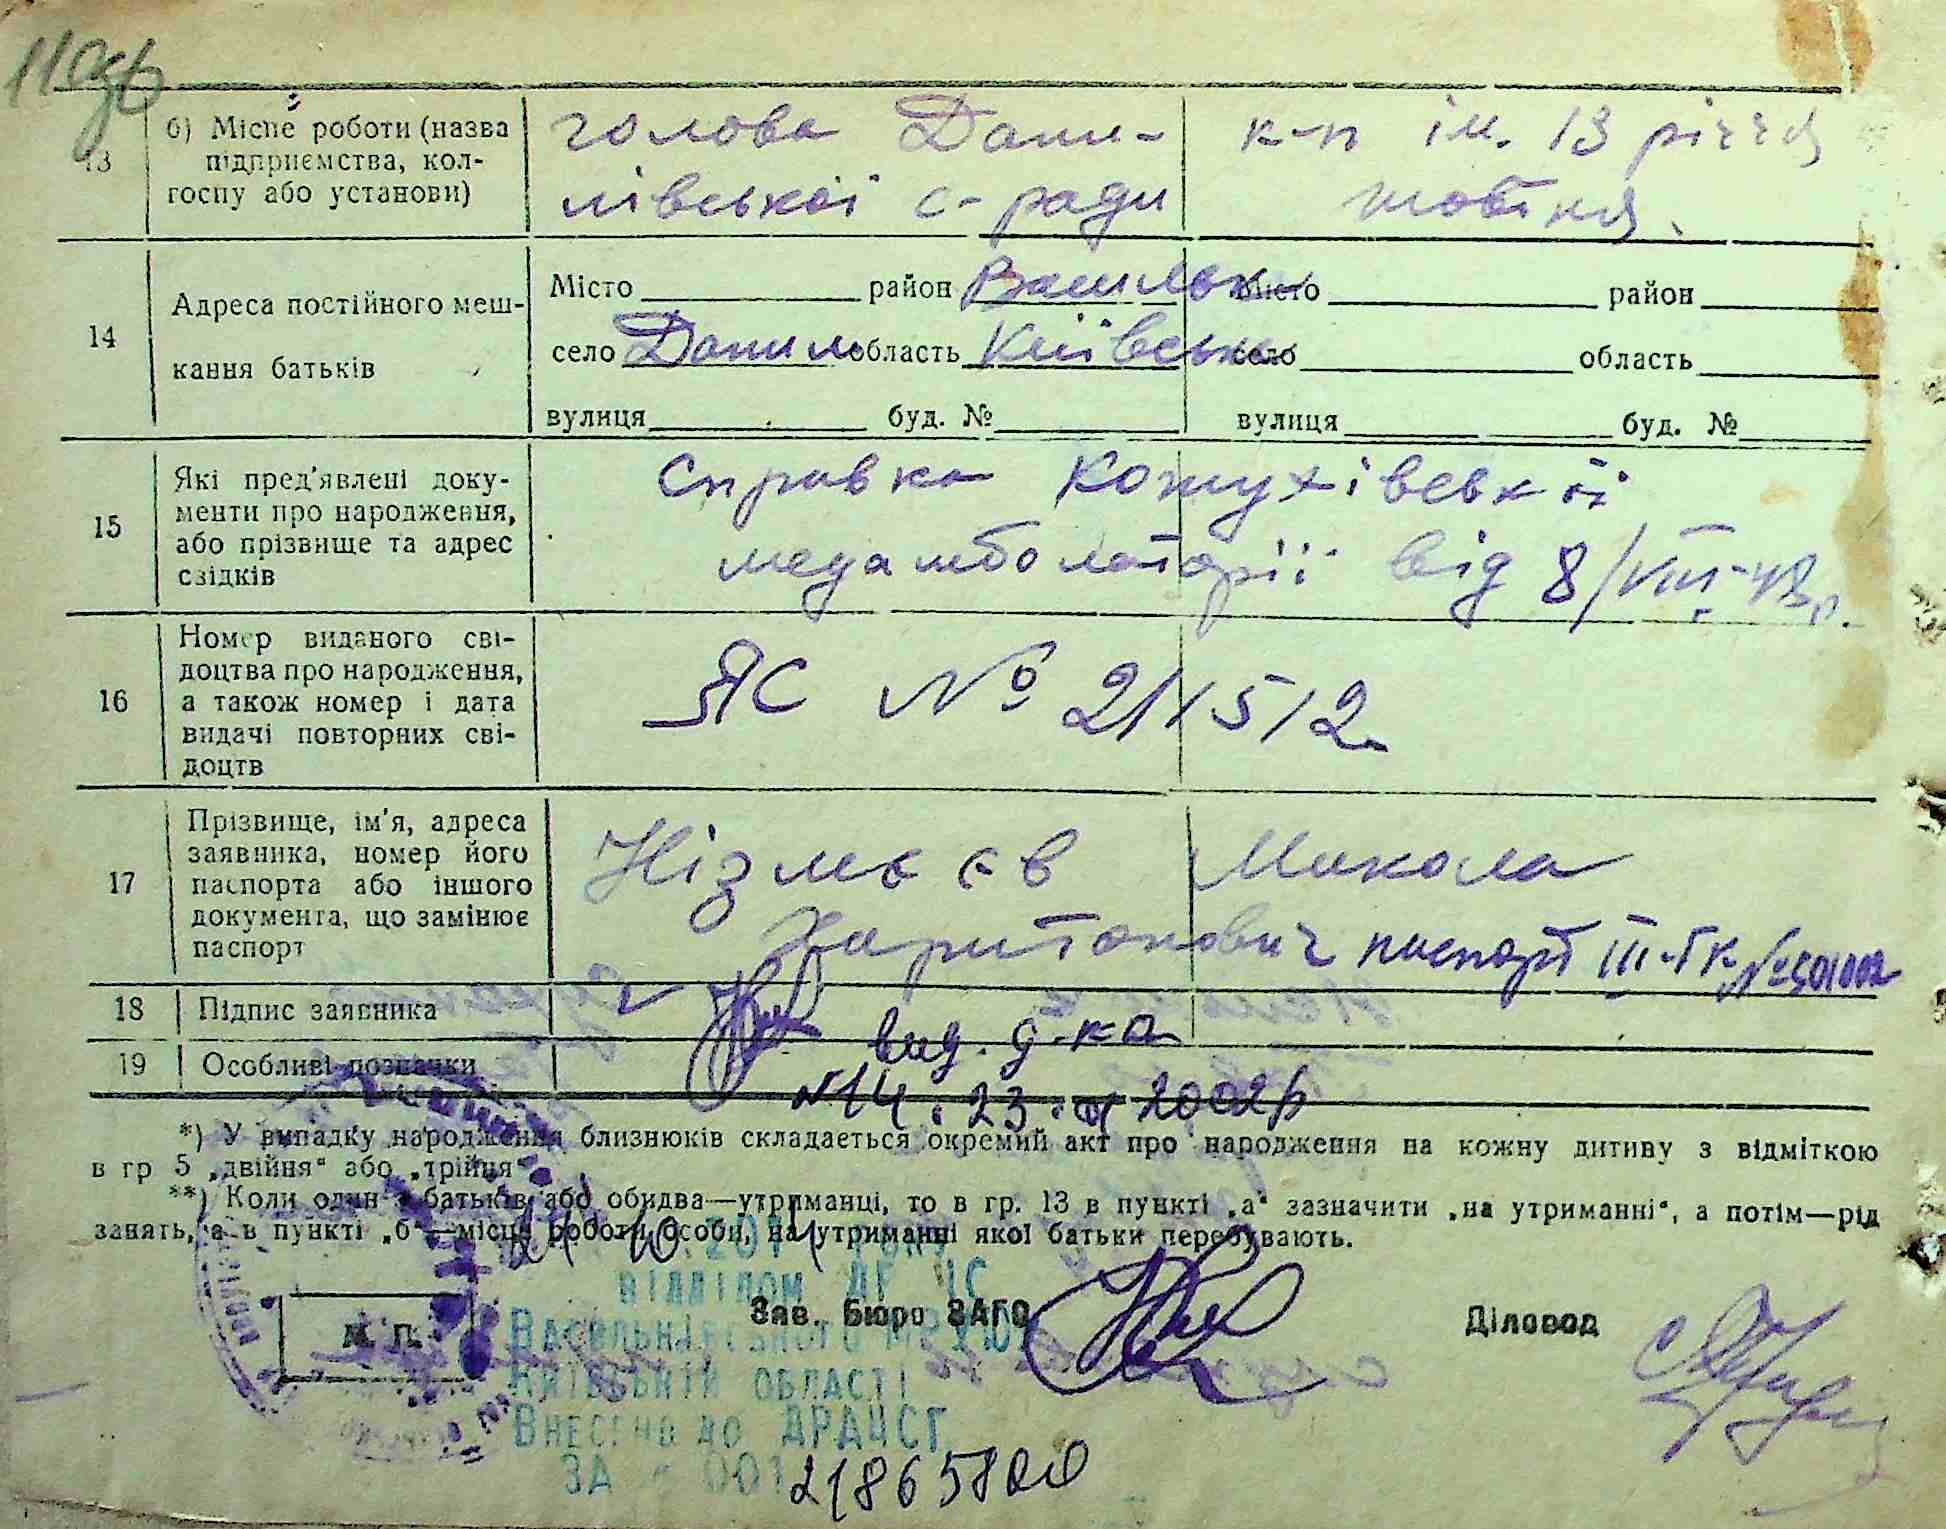 13 б) Місце роботи (назва підприємства, колгоспу або установи)
голова Дани-
лівської с-ради
к-п ім. 13 річчя
жовтня.
14 Адреса постійного меш-
кання батьків
Місто район Васильк
село Данил область Київська
вулиця буд. №
Місто район
село область
вулиця буд. №
15 Які пред'явлені доку-
менти про народження,
або прізвище та адрес
свідків
Справка Кожухівської
медамболаторії від 8/VIII-48 р.
16 Номер виданого сві-
доцтва про народження,
а також номер і дата
видачі повторних сві-
доцтв
ЯС № 211512
17 Прізвище, ім'я, адреса
заявника, номер його
паспорта або іншого
документа, що замінює
паспорт
Микола
Харитонович паспорт III-ГК № 501002
18 Підпис заявника
вид. д-ка
19 Особливі позначки
№14. 23. 2002р
*) У випадку народження близнюків складається окремий акт про народження на кожну дитину з відміткою
в гр 5 „двійня“ або „трійня“
**) Коли один з батьків або обидва—утриманці, то в гр. 13 в пункті „а“ зазначити „на утриманні“, а потім—рід
занять, а в пункті „б“—місце роботи особи, на утриманні якої батьки перебувають.
року
відділом ДР ЦС
Зав. Бюро ЗАГС
Діловод
Васильківського МРУЮ
М. П.
Київській області
Внесено до ДРАЦСГ
ЗА № 001 21865800